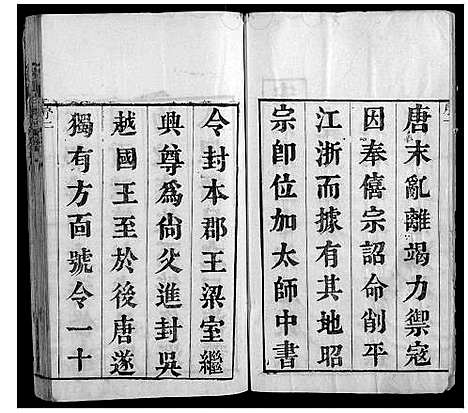 唐末亂離竭力禦寇
因奉僖宗詔命削平
江浙而據有其地昭
宗即位加太師中書
令封本郡王梁室繼
興尊爲尙父進封吳
越國王至於後唐遂
獨有方面號令一十
序二